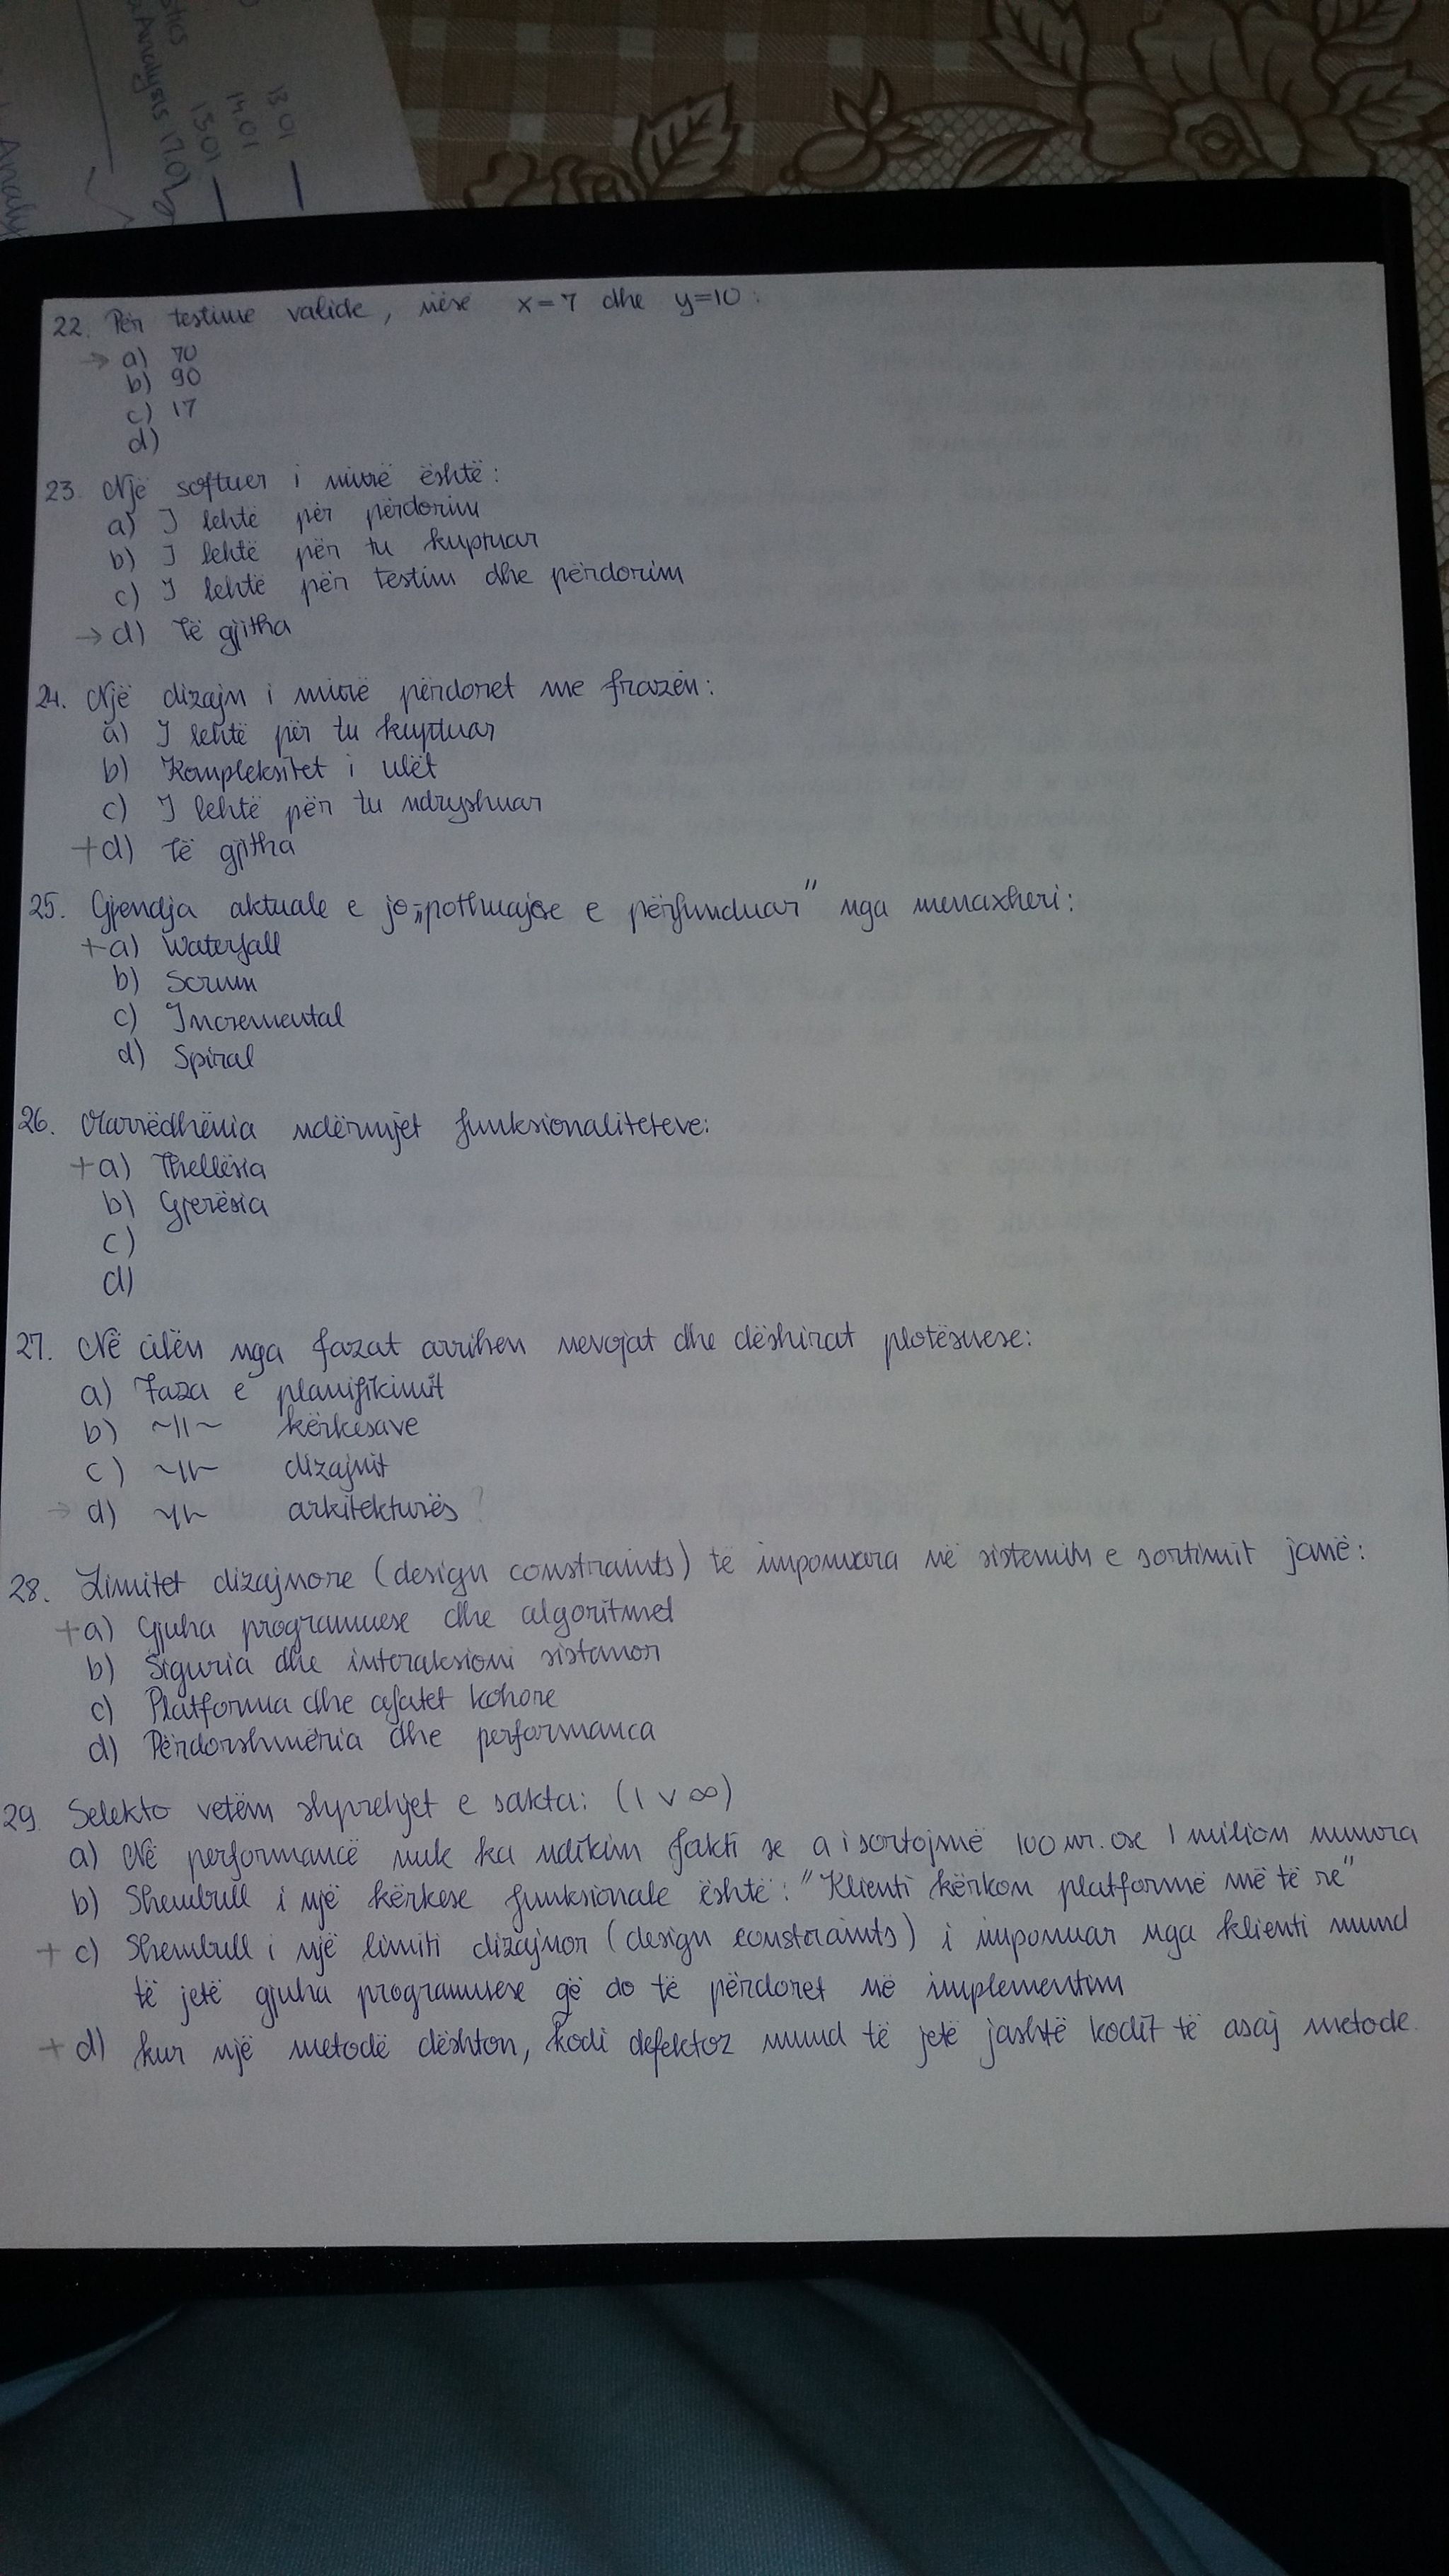 Analysis 17.01
13.01
14.01
13.01
22. Për testime valide, nëse x=7 dhe y=10:
→ a) 70
b) 90
c) 17
d)
23. Një softuer i mirë është:
a) I lehtë për përdorim
b) I lehtë për tu kuptuar
c) I lehtë për testim dhe përdorim
→ d) Të gjitha
24. Një dizajn i mirë përdoret me frazën:
a) I lehtë për tu kuptuar
b) Kompleksitet i ulët
c) I lehtë për tu ndryshuar
+ d) Të gjitha
25. Gjendja aktuale e jo „pothuajse e përfunduar" nga menaxheri:
+ a) Waterfall
b) Scrum
c) Incremental
d) Spiral
26. Marrëdhënia ndërmjet funksionaliteteve:
+ a) Thellësia
b) Gjerësia
c)
d)
27. Në cilën nga fazat arrihen nevojat dhe dëshirat plotësuese:
a) Faza e planifikimit
b) ~||~ kërkesave
c) ~||~ dizajnit
→ d) ~||~ arkitekturës ?
28. Limitet dizajnore (design constraints) të imponuara në sistemin e sortimit janë:
+ a) Gjuha programuese dhe algoritmet
b) Siguria dhe interaksioni sistemor
c) Platforma dhe afatet kohore
d) Përdorshmëria dhe performanca
29. Selekto vetëm shprehjet e sakta: (1 v ∞)
a) Në performancë nuk ka ndikim fakti se a i sortojmë 100 nr. ose 1 milion numra
b) Shembull i një kërkese funksionale është: "Klienti kërkon platformë më të re"
+ c) Shembull i një limiti dizajnor (design constraints) i imponuar nga klienti mund
të jetë gjuha programuese që do të përdoret në implementim
+ d) kur një metodë dështon, kodi defektoz mund të jetë jashtë kodit të asaj metode